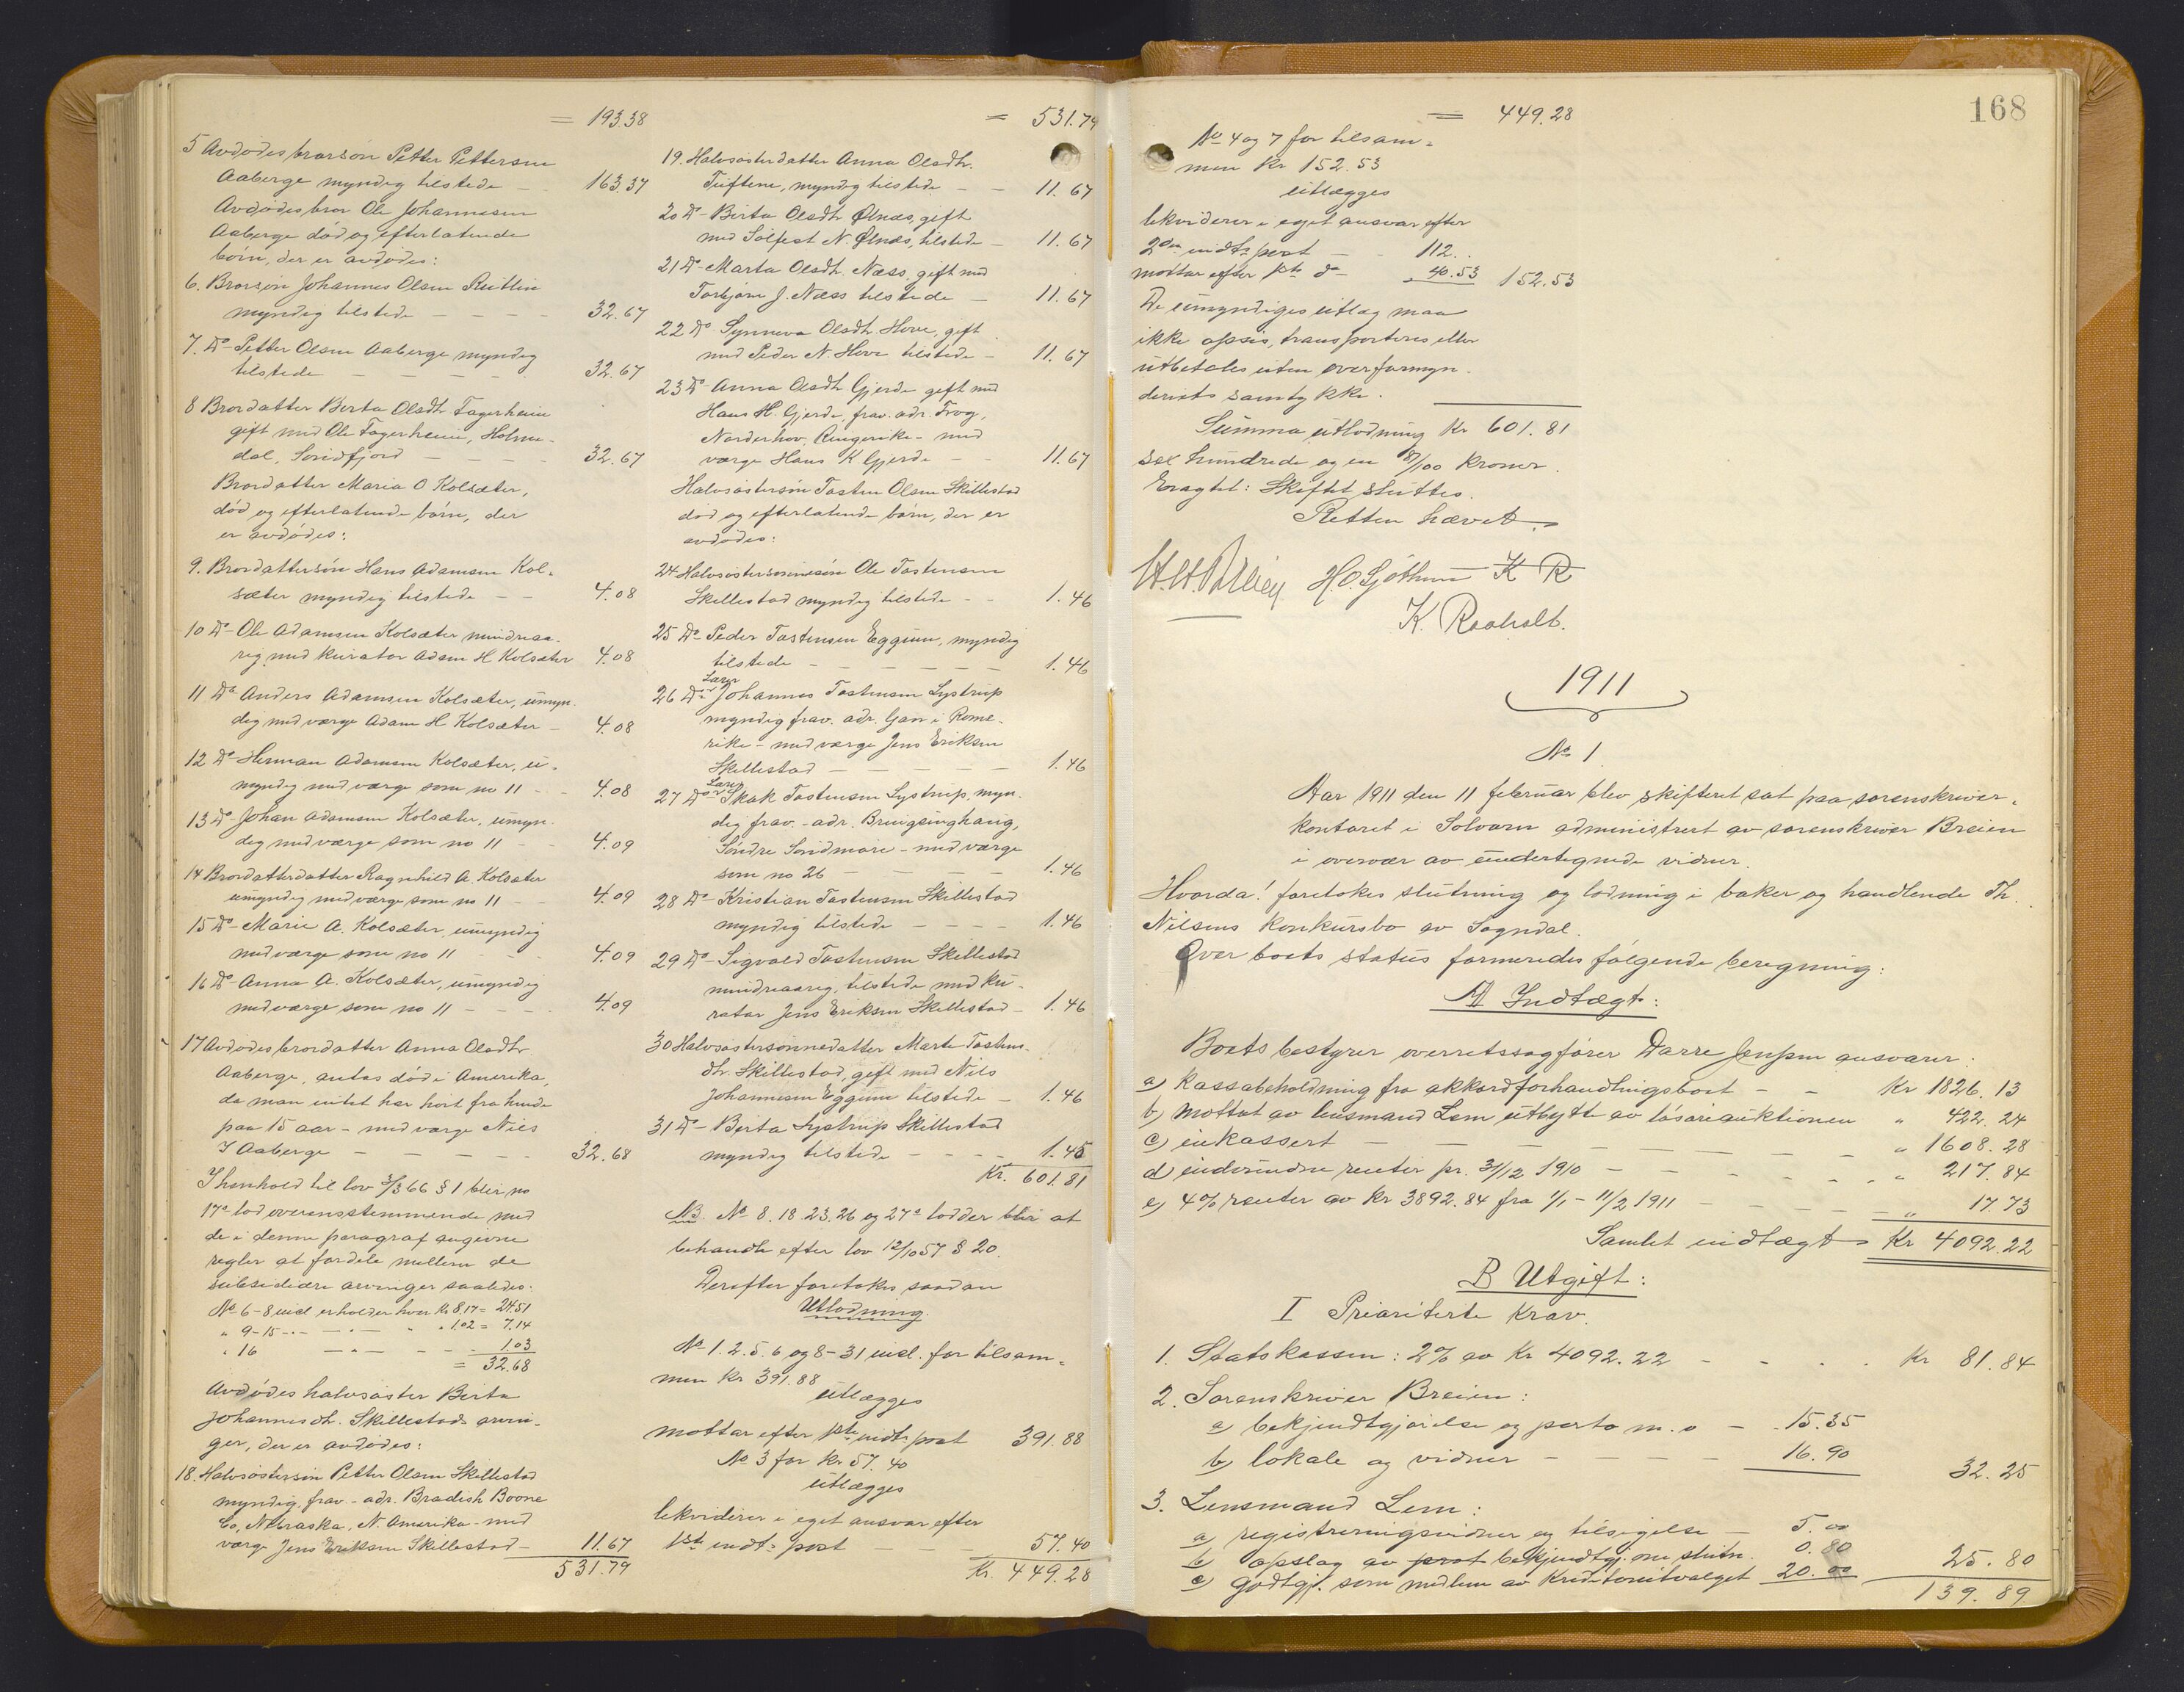 = 193.38
5 Avdødes brorsøn Petter Pettersen
Aaberge myndig tilstede — 163.37
Avdødes bror Ole Johannesen
Aaberge død og efterlatende
børn, der er avdødes:
6. Brorsøn Johannes Olsen Rutlin
myndig tilstede — — — — 32.67
7. Do- Petter Olsen Aaberge myndig
tilstede — — — — — 32.67
8 Brordatter Berta Olsdtr Fagerheim
gift med Ole Fagerheim, Holme-
dal, Søndfjord — — — 32.67
Brordatter Maria O Kolsæter,
død og efterlatende børn, der
er avdødes:
9. Brordattersøn Hans Adamsen Kol-
sæter myndig tilstede — — 4.08
10 Do- Ole Adamsen Kolsæter mindreaa-
rig med kurator Adam H Kolsæter 4.08
11 Do Anders Adamsen Kolsæter, umyn-
dig med værge Adam H Kolsæter — 4.08
12 Do- Herman Adamsen Kolsæter, u-
myndig med værge som no 11 - - 4.08
13 Do- Johan Adamsen Kolsæter, umyn-
dig med værge som no 11 - - 4.09
14 Brordatterdatter Ragnhild A. Kolsæter
umyndig med værge som no 11 - - 4.09
15 Do- Marie A. Kolsæter, umyndig
med værge som no 11 - - - 4.09
16 Do- Anna A. Kolsæter, umyndig
med værge som no 11 - - - - 4.09
17 Avdødes brordatter Anna Olsdtr
Aaberge, antas død i Amerika,
da man intet har hørt fra hende
paa 15 aar - med værge Nils
J Aaberge — — — — — 32.68
I henhold til lov 3/3 66 § 1 blir no
17s lod overensstemmende med
de i denne paragraf angivne
regler at fordele mellem de
subsidiære arvinger saaledes:
No 6-8 incl. erholder hver Kr 8.17 = 24.51
" 9-15 -.- -.- " " 1.02 = 7.14
" 16 -.- - - - 1.03
= 32.68
Avdødes halvsøster Berta
Johannesdtr. Skillestads arvin-
ger, der er avdødes:
18. Halvsøstersøn Petter Olsen Skillestad
myndig, frav. - adr. Bradish Boone
Co, Nebraska, N. Amerika - med
værge Jens Eriksen Skillestad — 11.67
531.79
= 531.79
19. Halvsøsterdatter Anna Olsdtr.
Tuftene, myndig tilstede — — 11.67
20 Do- Berta Olsdtr Ølnæs, gift
med Sølfest N. Ølnæs, tilstede — 11.67
21 Do- Marta Olsdtr. Næss, gift med
Torbjørn J. Næss tilstede — 11.67
22 Do Synneva Olsdtr Hove, gift
med Peder N. Hove tilstede — 11.67
23 Do- Anna Olsdtr Gjerde gift med
Hans H. Gjerde, frav. adr. Frog,
Norderhov, Ringerike - med
værge Hans K Gjerde - - 11.67
Halvsøstersøn Tosten Olsen Skillestad
død og efterlatende børn, der er
avdødes:
24 Halvsøstersønnesøn Ole Tostensen
Skillestad myndig tilstede - - 1.46
25 Do- Peder Tostensen Eggum, myndig
tilstede — — — — — — 1.46
Lars
26 Do- Johannes Tostensen Lystrup
myndig frav. adr. Gan i Rome-
rike - med værge Jens Eriksen
Skillestad — — — — — 1.46
Lars
27 Do- Skak Tostensen Lystrup, myn-
dig frav. - adr.
Søndre Søndmøre - med værge
som no 26 — — — — 1.46
28 Do- Kristian Tostensen Skillestad
myndig tilstede — — — — 1.46
29 Do- Sigvald Tostensen Skillestad
mindreaarig, tilstede med ku-
rator Jens Eriksen Skillestad — 1.46
30 Halvsøstersønnedatter Marte Tostens-
dtr. Skillestad, gift med Nils
Johannesen Eggum tilstede — 1.46
31 Do- Berta Lystrup Skillestad
myndig tilstede — — — — 1.45
Kr. 601.81
NB. No 8. 18. 23. 26 og 27s lodder blir at
behandle efter lov 12/10 57 § 20.
Derefter foretokes saadan
Utlodning.
No 1. 2. 5. 6 og 8-31 incl. for tilsam-
men Kr 391.88
utlægges
mottar efter 1ste indt. post 391.88
No 3 for Kr 57.40
utlægges
likviderer i eget ansvar efter
1ste indt. post — — — 57.40
Kr. 449.28
168
= 449.28
No 4 og 7 for tilsam-
men Kr 152.53
utlægges
likviderer i eget ansvar efter
2den indt. post — - 112..
mottar efter 1ste do — 40.53 152.53
De umyndiges utlæg maa
ikke opsies, transporteres eller
utbetales uten overformyn-
deriets samtykke.
Summa utlodning Kr 601.81
sex hundrede og en 81/100 Kroner.
Eragtet: Skiftet sluttes.
Retten hævet.
H. O. Sjøthun K R
K. Raaholt.
1911
No 1
Aar 1911 den 11 februar blev skifteret sat paa sorenskriver-
kontoret i Solvorn administrert av sorenskriver Breien
i overvær av undertegnede vidner.
Hvorda! foretokes slutning og lodning i baker og handlende Th.
Nilsens konkursbo av Sogndal.
Over boets status formeredes følgende beregning:
A Indtægt:
Boets bestyrer overretssagfører Darre Jenssen ansvarer:
a) Kassabeholdning fra akkordforhandlingsboet - - Kr 1826.13
b) mottat av lensmand Lem utbytte av løsøreauktionen " 422.24
c) inkassert — — — — — — — " 1608.28
d) indvundne renter pr. 31/12 1910 — — - - - - " 217.84
e) 4% renter av Kr 3892.84 fra 1/1 - 11/2 1911 — — — — " 17.73
Samlet indtægt Kr 4092.22
B Utgift:
I Prioriterte krav.
1. Statskassen: 2% av Kr 4092.22 - - - - Kr 81.84
2. Sorenskriver Breien:
a) bekjendtgjørelse og porto m.v - 15.35
b) lokale og vidner — — — — 16.90 32.25
3. Lensmand Lem:
a) registreringsvidner og tilsigelse — 5.00
b) opslag av prot bekjendtgj. om slutn. 0.80
c) godtgj. som medlem av kreditorutvalget 20.00 25.80
139.89